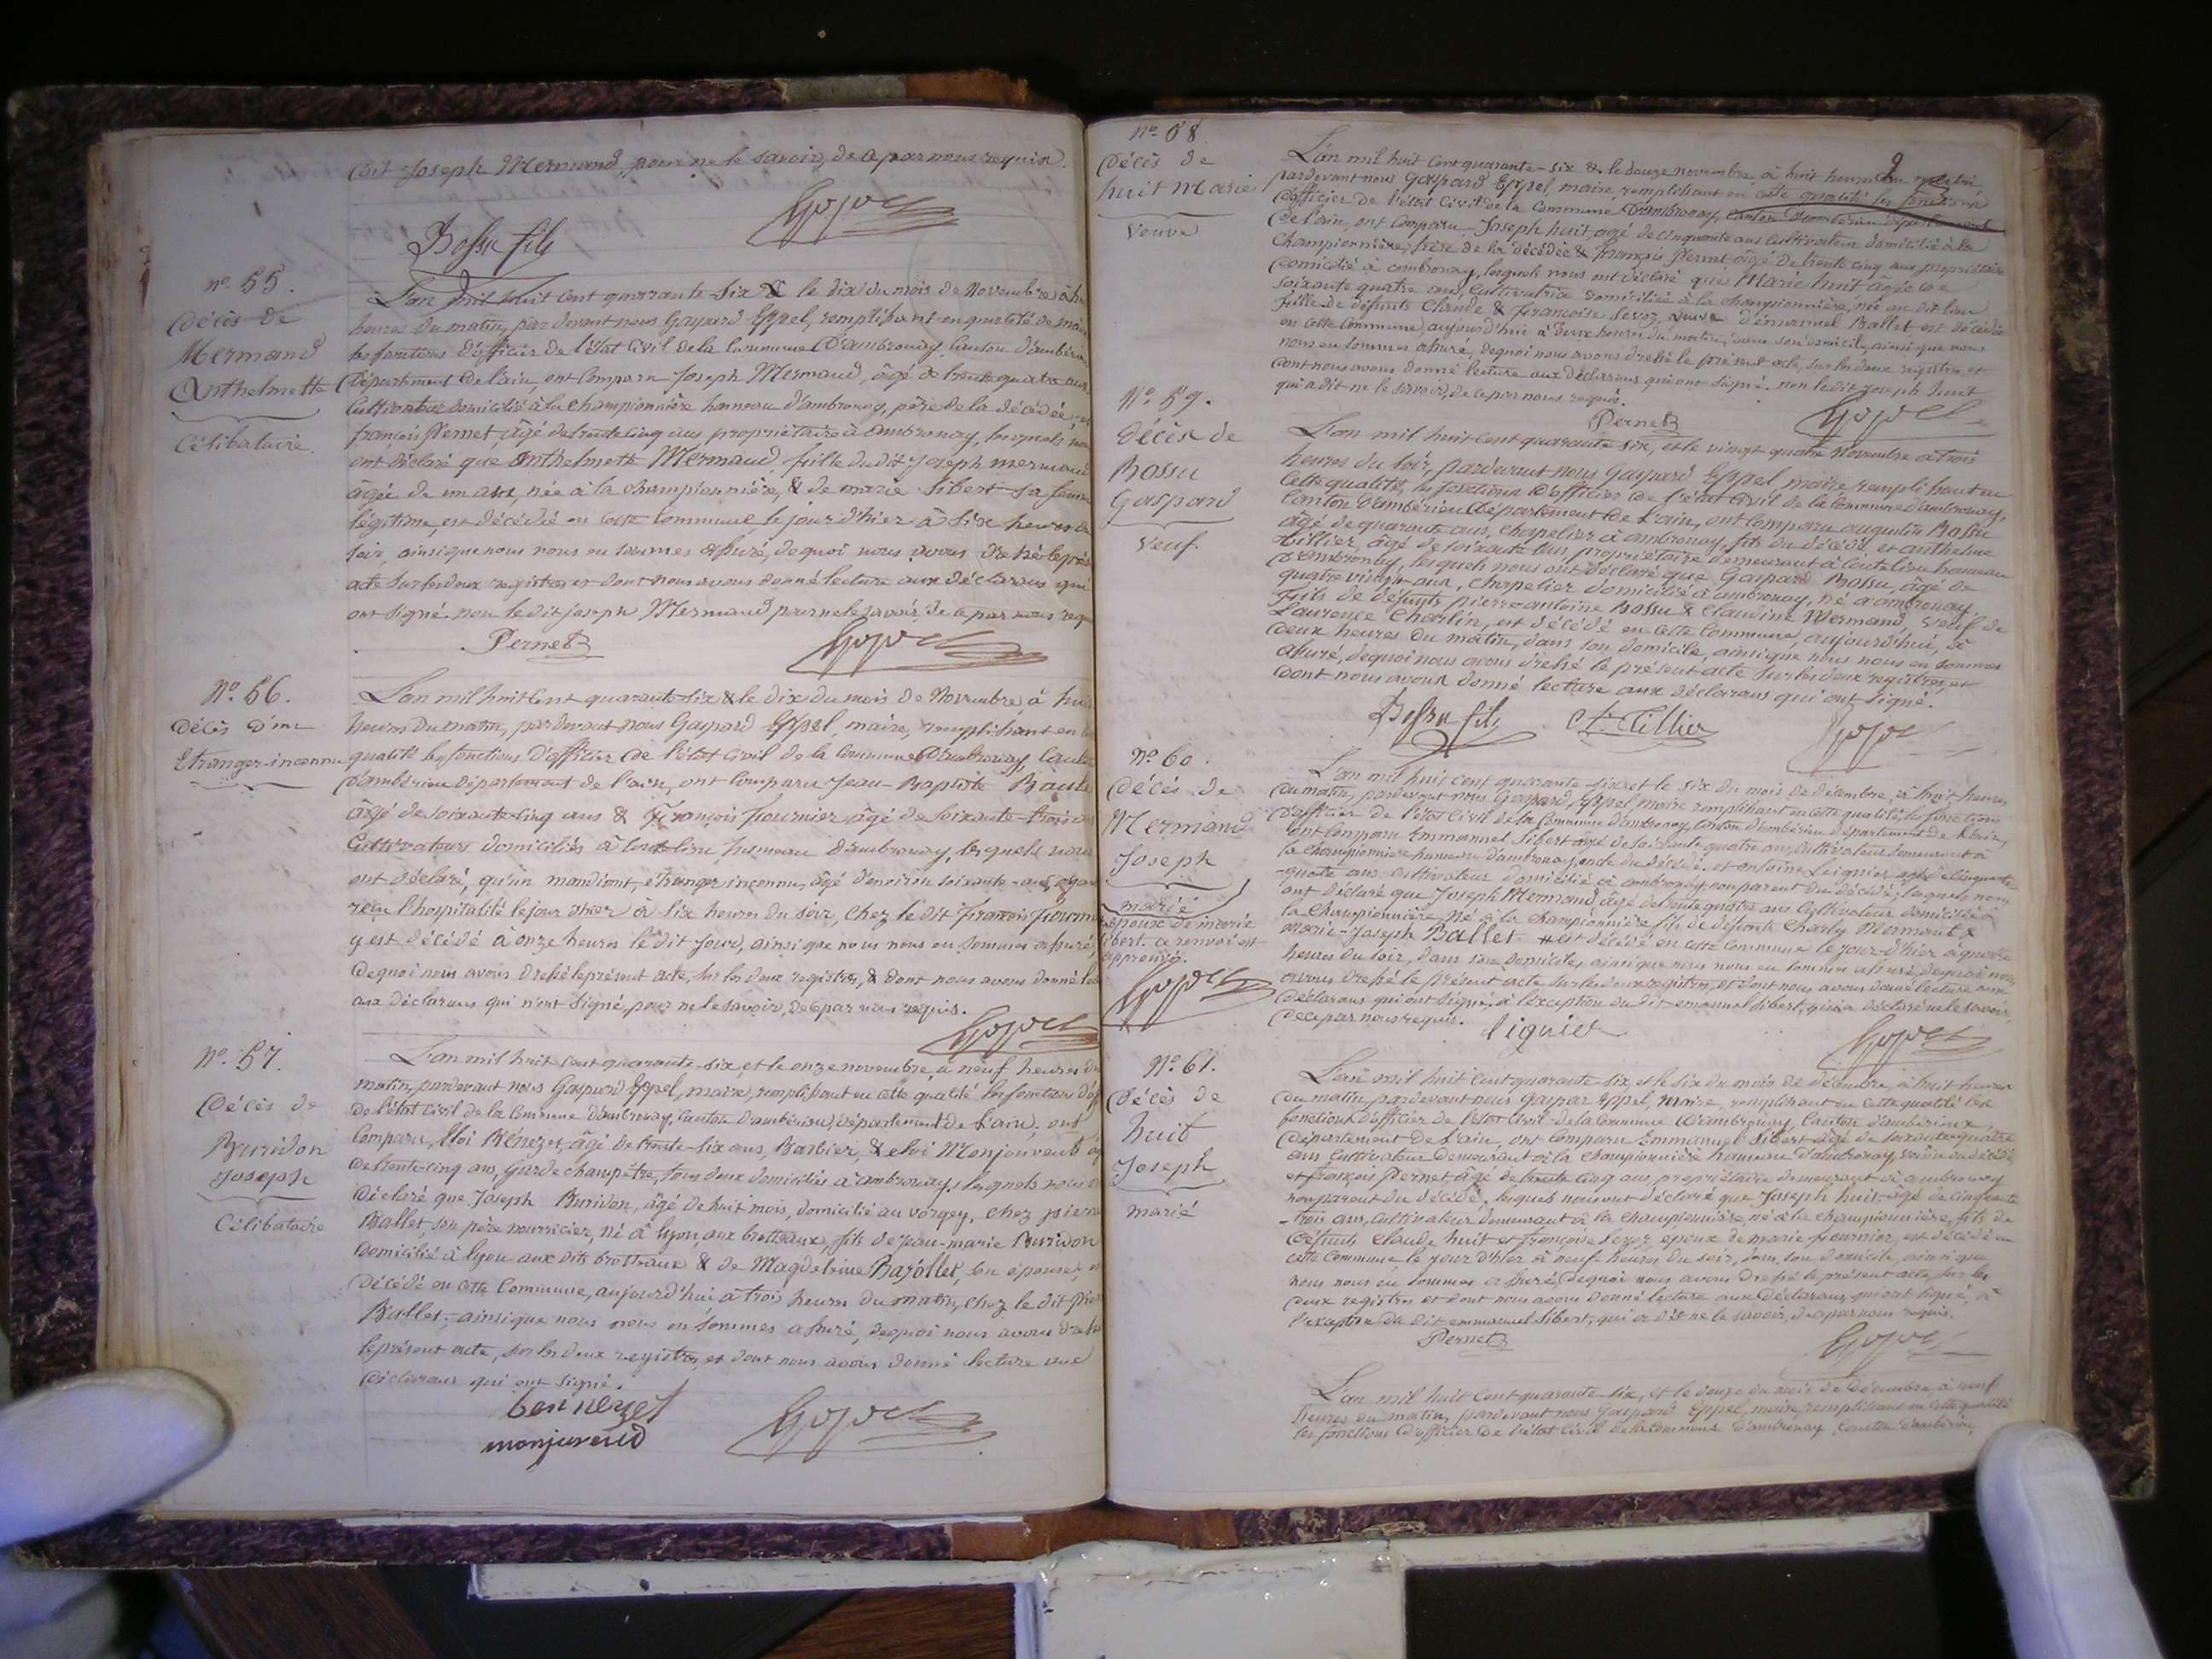 dit Joseph Mermand, pour ne le savoir, de ce par nous requis.
Bossu fils
n° 55.
Décès de
Mermand
Anthelmette
Célibataire.
L'an mil huit cent quarante-six & le dix du mois de Novembre, à
heures du matin, par devant nous Gaspard Eppel, remplissant en qualité de
les fonctions d'officier de l'état Civil de la Commune d'ambronay, Canton d'ambérieu
département de l'ain, ont Comparu Joseph Mermand, âgé de trente quatre ans
Cultivateur domicilié à la Championnière hameau d'ambronay, père de la décédée, et
françois Pernet, âgé de trente cinq ans propriétaire à ambronay, lesquels nous
ont déclaré que Anthelmette Mermand, fille du dit Joseph mermand
âgée de un an, née à la championnière, & de marie Sibert sa femme
légitime, est décédée en cette Commune le jour d'hier à Six heures du
soir, ainsi que nous nous en sommes assuré, de quoi nous avons dressé le
acte sur les deux registres et dont nous avons donné lecture aux déclarans qui
ont signé, non le dit joseph Mermand pour ne le savoir, de ce par nous
Pernet
N° 56.
Décès d'un
Etranger-inconnu
L'an mil huit Cent quarante-six & le dix du mois de Novembre, à huit
heures du matin, pardevant nous Gaspard Eppel, maire, remplissant en
qualité les fonctions d'officier de l'état Civil de la Commune d'ambronay, Canton
d'ambérieu département de l'ain, ont Comparu Jean-Baptiste
âgé de soixante-cinq ans & François fournier âgé de soixante-trois ans
Cultivateurs domiciliés à hameau d'ambronay, lesquels nous
ont déclaré, qu'un mandiant, étranger inconnu, âgé d'environ soixante-ans, ayant
reçu l'hospitalité le jour d'hier à six heures du soir, chez le dit François
y est décédé à onze heures le dit jour, ainsi que nous nous en sommes assuré,
de quoi nous avons dressé le présent acte, sur les deux registres, & dont nous avons donné
aux déclarans qui n'ont signé, pour ne le savoir, de ce par nous requis.
N° 57.
Décès de
Buridon
Joseph
Célibataire
L'an mil huit cent quarante-six, et le onze novembre, à neuf heures du
matin, pardevant nous Gaspard Eppel, maire, remplissant en cette qualité les fonctions
de l'état Civil de la Commune d'ambronay, Canton d'ambérieu, département de l'ain, ont
Comparu, Eloi Bénezet, âgé de trente-six ans, Barbier, & eloi Monjouvent
de trente-cinq ans, Garde champêtre, tous deux domiciliés à ambronay, lesquels nous
déclaré que Joseph Buridon, âgé de huit mois, domicilié au vorgey, chez pierre
Ballet, son père nourricier, né à lyon, aux brotteaux, fils de jean-marie Buridon
domicilié à lyon aux dits brotteaux & de Magdeleine Bajollet, son épouse,
décédé en cette Commune, aujourd'hui à trois heures du matin, chez le dit
Ballet, ainsi que nous nous en sommes assuré, de quoi nous avons
le présent acte, sur les deux registres, et dont nous avons donné lecture aux
déclarans qui ont signé.
bennezet
monjuvent
n° 58.
Décès de
huit Marie
Veuve
L'an mil huit Cent quarante-six & le douze novembre, à huit heures du matin
pardevant nous Gaspard Eppel, maire, remplissant en cette qualité les fonctions
d'officier de l'état Civil de la Commune d'ambronay, Canton d'ambérieu département
de l'ain, ont Comparu Joseph huit, âgé de Cinquante ans Cultivateur domicilié à la
Championnière, frère de la décédée & françois Pernet âgé de trente cinq ans, propriétaire
domicilié à ambronay, lesquels nous ont déclaré que Marie huit âgée de
soixante quatre ans, Cultivatrice domiciliée à la championnière, née au dit lieu
fille de défunts Claude & françoise veuve d'emmanuel Ballet est décédée
en cette Commune, aujourd'hui à deux heures du matin, dans son domicile, ainsi que nous
nous en sommes assuré, de quoi nous avons dressé le présent acte, sur les deux registres, et
dont nous avons donné lecture aux déclarans qui ont signé, non le dit Joseph huit
qui a dit ne le savoir, de ce par nous requis.
Pernet
N° 59.
Décès de
Bossu
Gaspard
Veuf.
L'an mil huit cent quarante six, et le vingt quatre Novembre à trois
heures du soir, pardevant nous Gaspard Eppel maire remplissant en
cette qualité, les fonctions d'officier de l'état Civil de la Commune d'ambronay,
Canton d'ambérieu département de l'ain, ont Comparu augustin Bossu
âgé de quarante ans, chapelier à ambronay, fils du décédé, et anthelme
tillier, âgé de soixante ans, propriétaire demeurant à hameau
d'ambronay, lesquels nous ont déclaré que Gaspard Bossu, âgé de
quatre vingt ans, chapelier domicilié à ambronay, né à ambronay,
fils de défunts pierre antoine Bossu & Claudine Mermand, veuf de
Laurence Charlin, est décédé en cette Commune, aujourd'hui, à
deux heures du matin, dans son domicile, ainsi que nous nous en sommes
assuré, de quoi nous avons dressé le présent acte sur les deux registres, et
dont nous avons donné lecture aux déclarans qui ont signé.
Bossu fils A. Tillier
N° 60.
Décès de
Mermand
Joseph
marié
époux de marie
Sibert. ce renvoi est
approuvé.
L'an mil huit cent quarante-six et le six du mois de décembre, à huit heures
du matin, pardevant nous Gaspard Eppel, maire remplissant en cette qualité, les fonctions
d'officier de l'état Civil de la Commune d'ambronay, Canton d'ambérieu département de l'ain,
ont Comparu Emmanuel Sibert âgé de soixante quatre ans, Cultivateur demeurant à
la Championnière hameau d'ambronay, oncle du décédé, et antoine Leignier âgé de cinquante
ans cultivateur domicilié à ambronay non parent du décédé, lesquels nous
ont déclaré que Joseph Mermand âgé de trente quatre ans Cultivateur domicilié à
la Championnière, né à la championnière fils de défunts Charly Mermand &
marie-Joseph Ballet # est décédé en cette Commune le jour-d'hier à quatre
heures du soir, dans son domicile, ainsi que nous nous en sommes assuré, de quoi nous
avons dressé le présent acte sur les deux registres, et dont nous avons donné lecture aux
déclarans qui ont signé, à l'exception du dit emmanuel Sibert, qui a déclaré ne le savoir,
de ce par nous requis.
liguier
N° 61.
Décès de
huit
Joseph
marié
L'an mil huit Cent quarante six, et le six du mois de décembre, à huit heures
du matin, pardevant nous Gaspar Eppel, maire, remplissant en cette qualité les
fonctions d'officier de l'état Civil de la Commune d'ambronay, Canton d'ambérieux,
département de l'ain, ont Comparu Emmanuel Sibert âgé de soixante-quatre
ans Cultivateur demeurant à la Championnière hameau d'ambronay, voisin du décédé
et françois Pernet âgé de trente cinq ans, propriétaire demeurant à ambronay
non parent du décédé, lesquels nous ont déclaré, que Joseph huit âgé de cinquante
-trois ans, Cultivateur demeurant à la Championnière, né à la championnière, fils de
défunts Claude huit et françoise époux de marie fournier, est décédé en
cette Commune le jour d'hier à neuf heures du soir, dans son domicile, ainsi que
nous nous en sommes assuré, de quoi nous avons dressé le présent acte, sur les
deux registres et dont nous avons donné lecture aux déclarans, qui ont signé, à
l'exception du dit emmanuel Sibert, qui a dit ne le savoir, de ce par nous requis.
Pernet
L'an mil huit Cent quarante-six, et le douze du mois de décembre, à neuf
heures du matin, pardevant nous Gaspard Eppel, maire, remplissant en cette qualité
les fonctions d'officier de l'état Civil de la Commune d'ambronay Canton d'ambérieu,